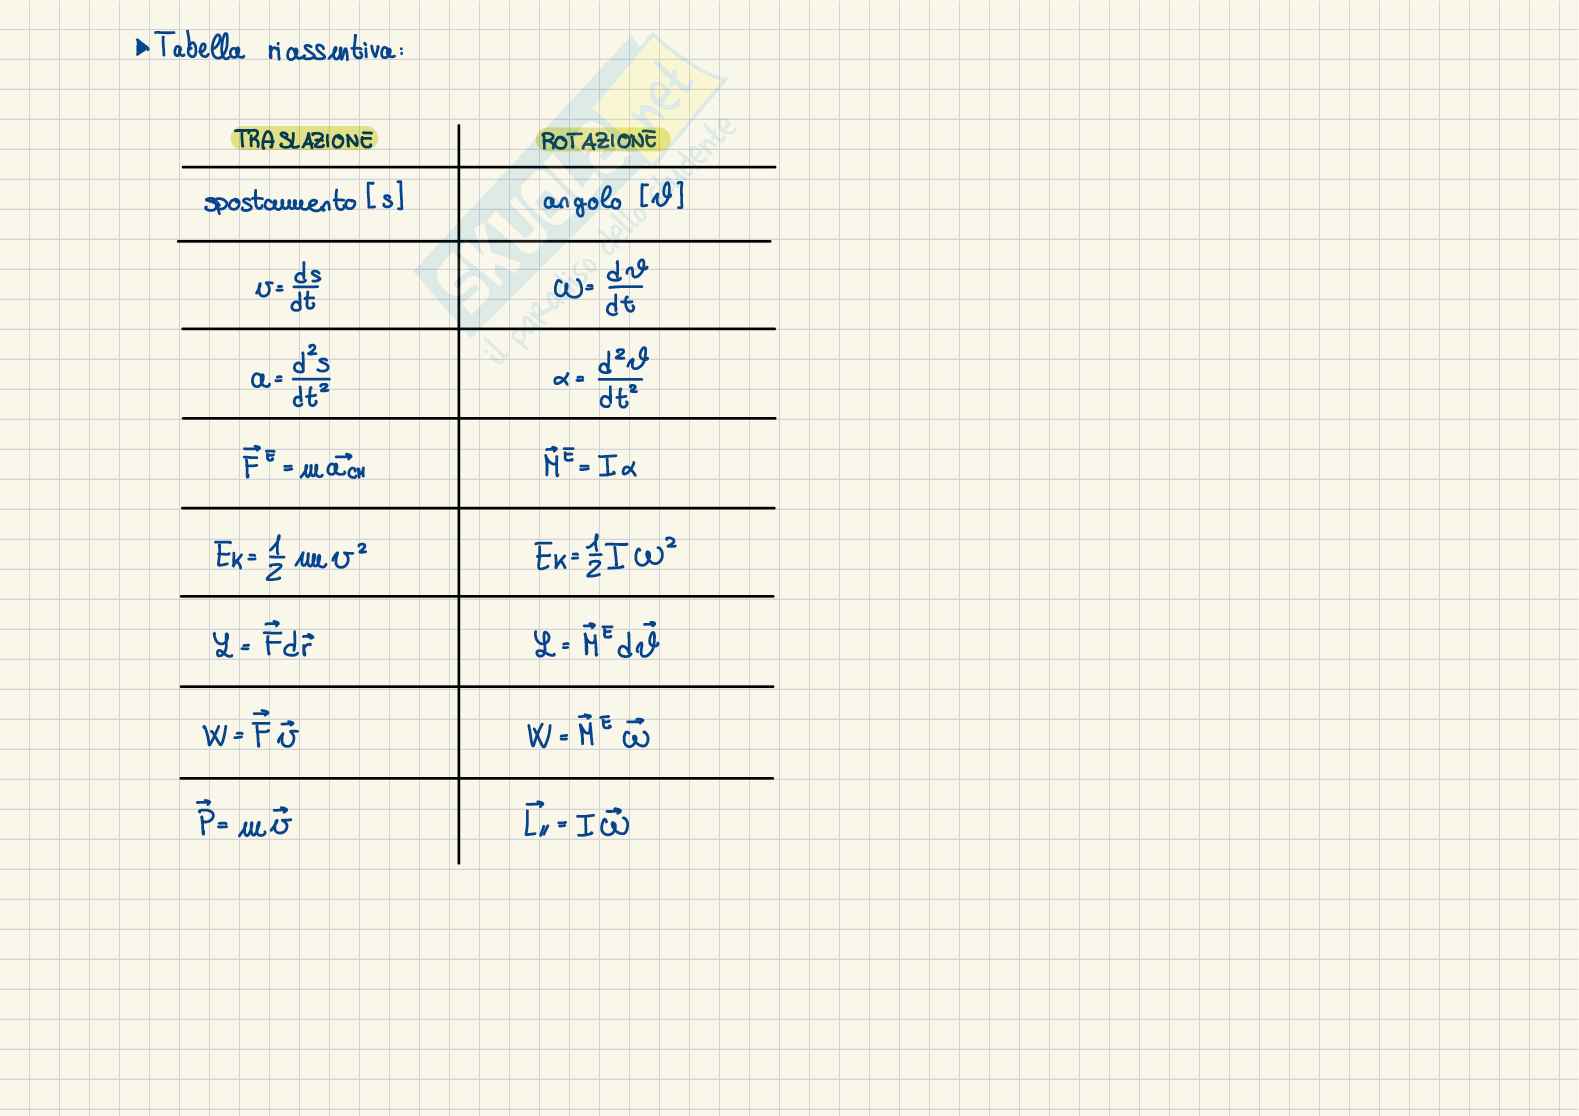 ▶ Tabella riassuntiva:
TRASLAZIONE ROTAZIONE
spostamento [s] angolo [ϑ]
v = ds/dt ω = dϑ/dt
a = d²s/dt² α = d²ϑ/dt²
F⃗ᴱ = m a⃗_CM M⃗ᴱ = I α
E_K = 1/2 m v² E_K = 1/2 I ω²
ℒ = F⃗ d r⃗ ℒ = M⃗ᴱ d ϑ⃗
W = F⃗ v⃗ W = M⃗ᴱ ω⃗
P⃗ = m v⃗ L⃗_∥ = I ω⃗
SKUOLA.net
il paradiso dello studente